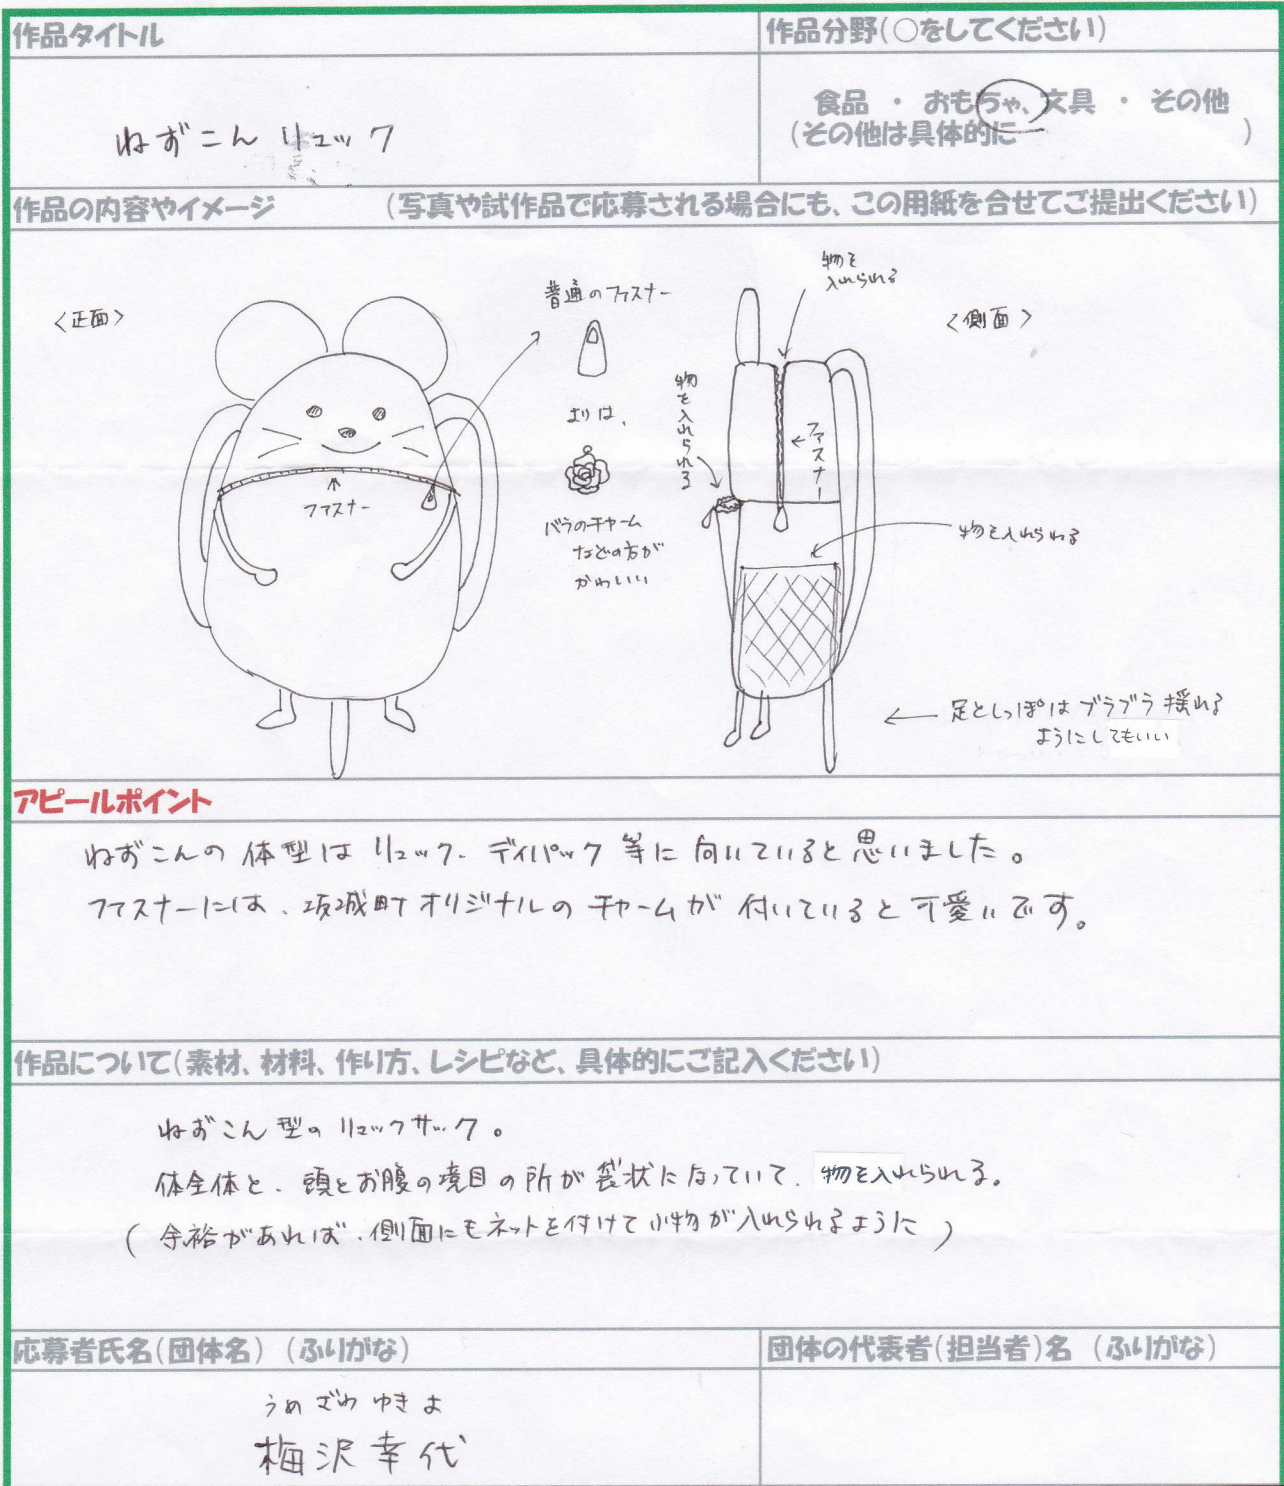 作品タイトル
作品分野(○をしてください)
ねずこん リュック
食品 ・ おもちゃ、文具 ・ その他
(その他は具体的に                    )
作品の内容やイメージ     (写真や試作品で応募される場合にも、この用紙を合せてご提出ください)
<正面>
ファスナー
普通のファスナー
よりは、
バラのチャーム
などの方が
かわいい
物を
入れられる
<側面>
物を入れられる
ファスナー
物を入れられる
足としっぽはブラブラ揺れる
ようにしてもいい
アピールポイント
ねずこんの体型はリュック、デイパック等に向いていると思いました。
ファスナーには、坂城町オリジナルのチャームが付いていると可愛いです。
作品について(素材、材料、作り方、レシピなど、具体的にご記入ください)
ねずこん型のリュックサック。
体全体と、頭とお腹の境目の所が袋状になっていて、物を入れられる。
(余裕があれば、側面にもネットを付けて小物が入れられるように)
応募者氏名(団体名) (ふりがな)
団体の代表者(担当者)名 (ふりがな)
うめざわ ゆきよ
梅沢幸代